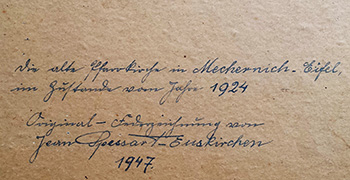 Die alte Pfarrkirche in Mechernich-Eifel,
im Zustande vom Jahre 1924
Original-Federzeichnung von
Jean Spessart-Euskirchen
1947.